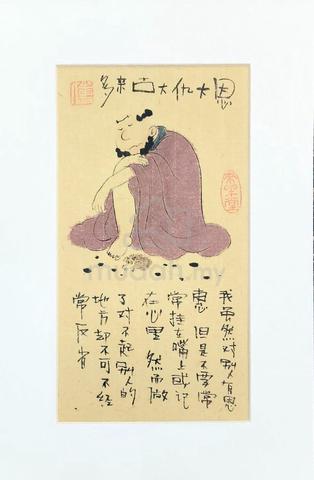 恩大仇大古来多
我虽然对别人有恩
惠 但是不要常
常挂在嘴上或记
在心里 然而做
了对不起别人的
地方却不可不经
常反省
mudah.my